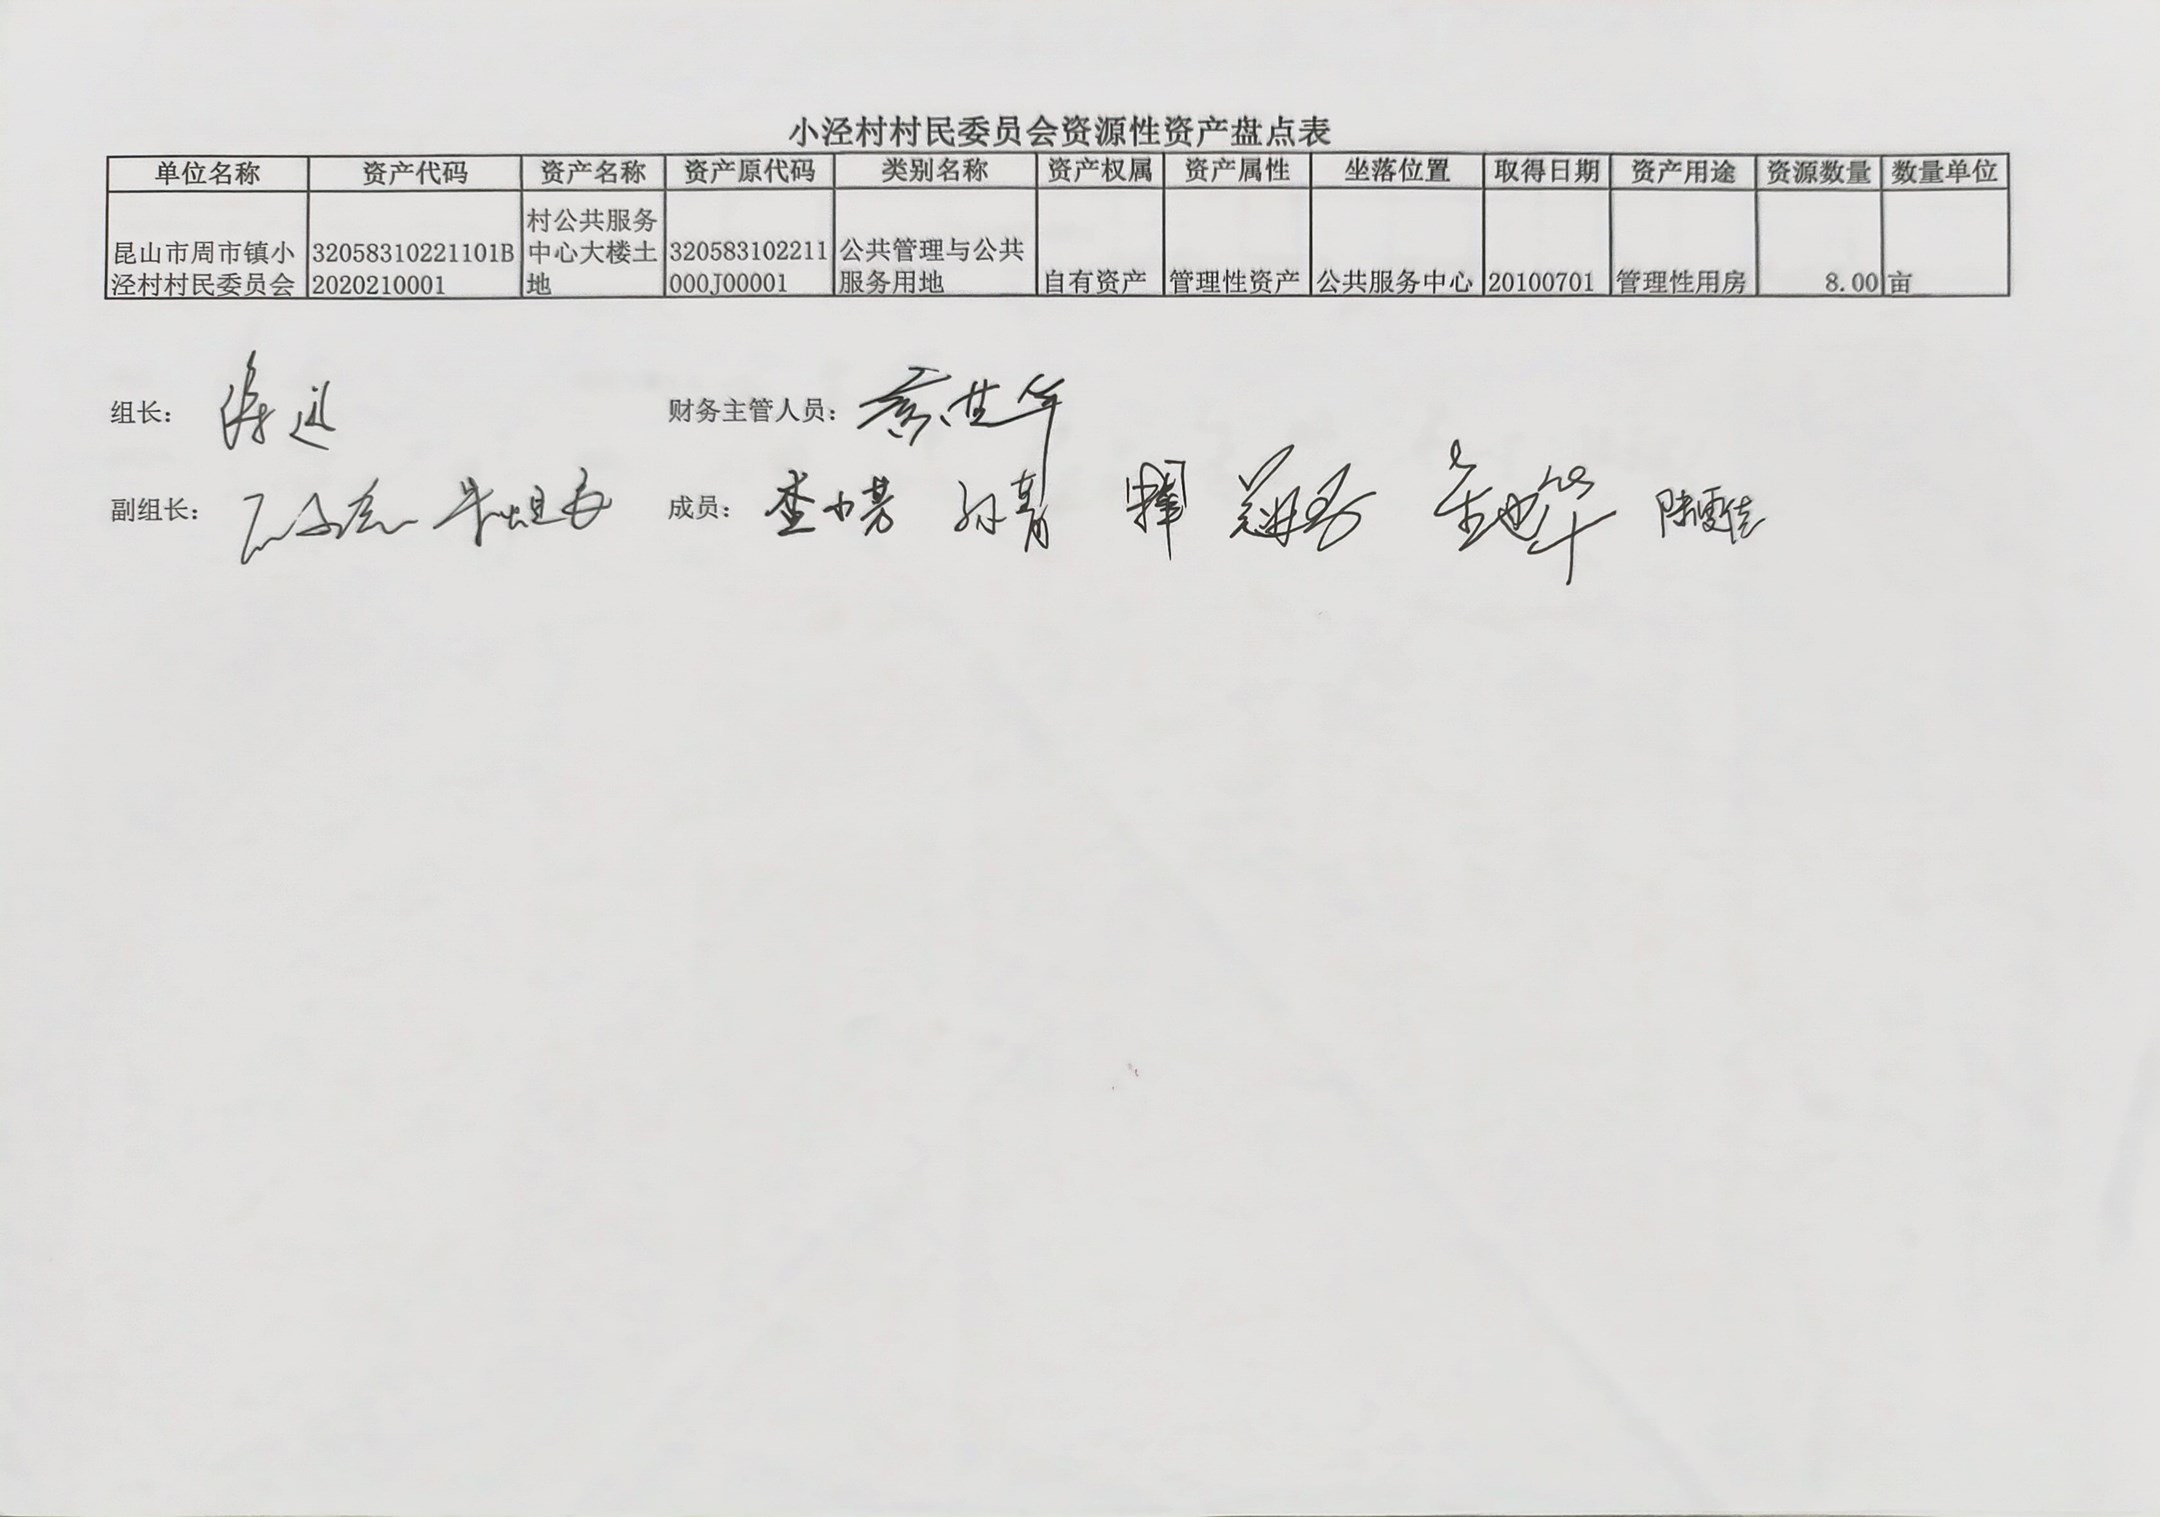 小泾村村民委员会资源性资产盘点表
单位名称 资产代码 资产名称 资产原代码 类别名称 资产权属 资产属性 坐落位置 取得日期 资产用途 资源数量 数量单位
昆山市周市镇小
泾村村民委员会
32058310221101B
2020210001
村公共服务
中心大楼土
地
320583102211
000J00001
公共管理与公共
服务用地
自有资产
管理性资产
公共服务中心
20100701
管理性用房
8.00
亩
组长： 财务主管人员：
副组长： 成员： 查小芳 孙青